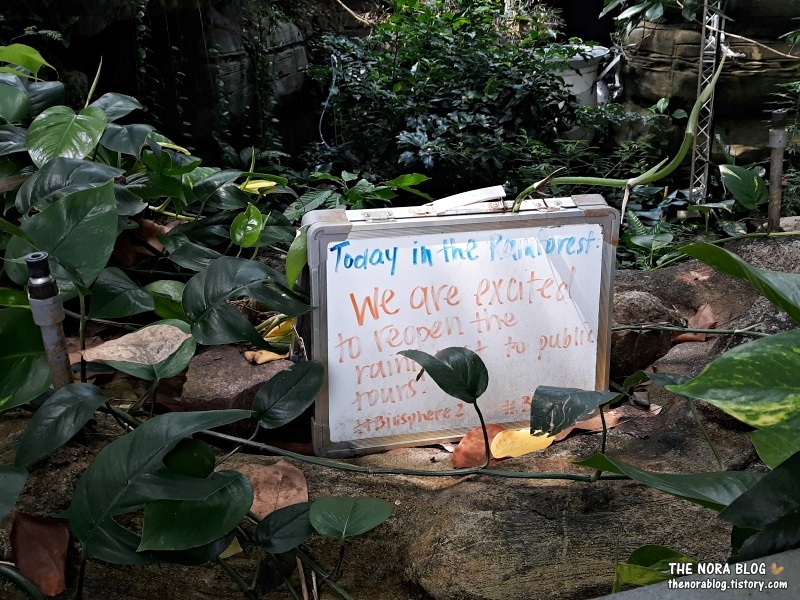 Today in the Rainforest:
We are excited
to reopen the
to public
tours!
#Biosphere2 #
THE NORA BLOG
thenorablog.tistory.com